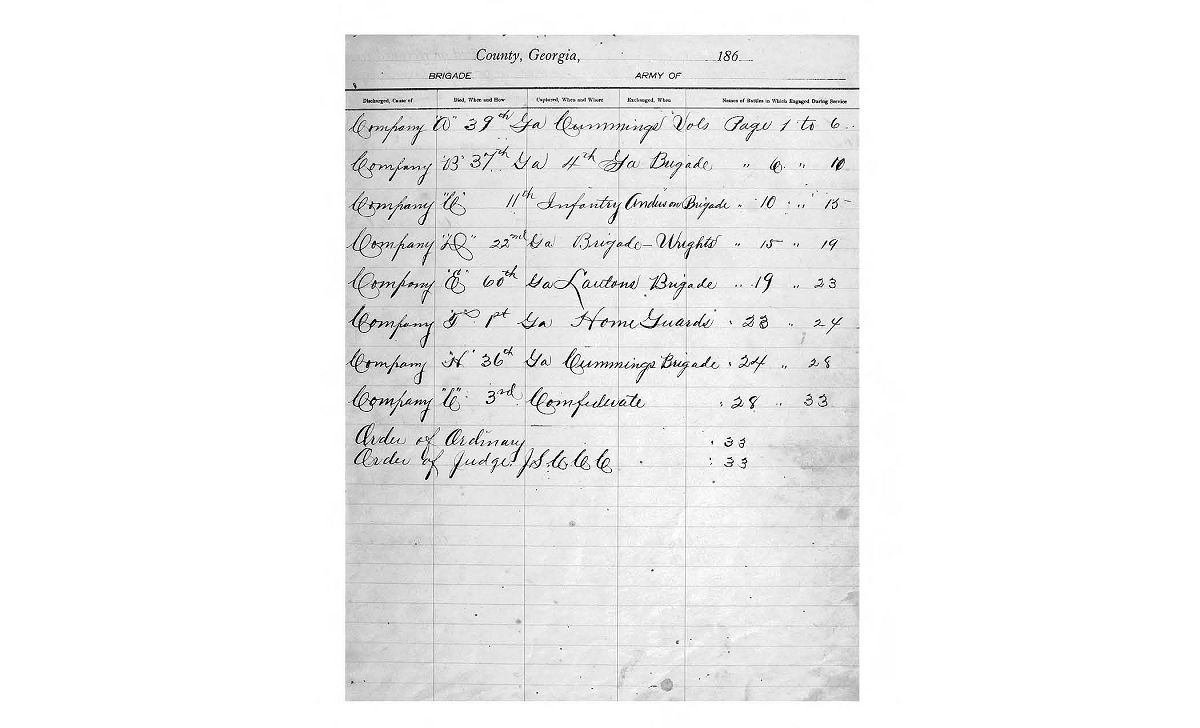 County, Georgia, 186
BRIGADE ARMY OF
Discharged, Cause of Died, When and How Captured, When and Where Exchanged, When Names of Battles in Which Engaged During Service
Company "A" 39th Ga Cummings Vols Page 1 to 6
Company "B" 37th Ga 4th Ga Brigade " 6 " 10
Company "C" 11th Infantry Anderson Brigade " 10 " 15
Company "D" 22nd Ga Brigade - Wrights " 15 " 19
Company "E" 60th Ga Lawtons Brigade " 19 " 23
Company "F" 1st Ga Home Guards " 23 " 24
Company "H" 36th Ga Cummings Brigade " 24 " 28
Company "C" 3rd Confederate " 28 " 33
Order of Ordinary " 33
Order of Judge J.S.C.C.C. " 33